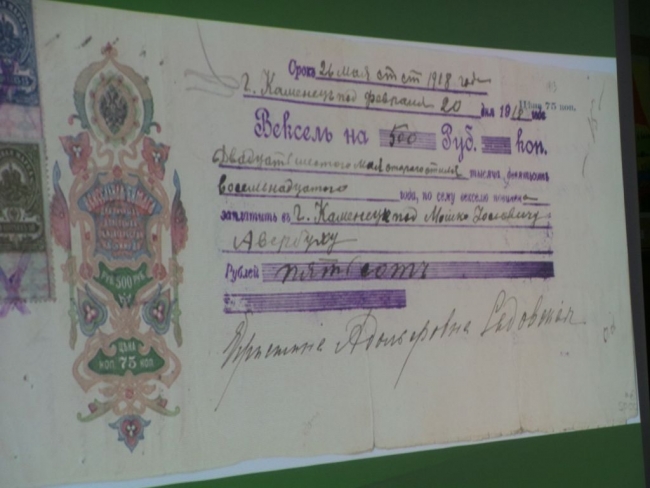 Срокъ 26 мая ст ст 1918 года
г. Каменецъ под февраля 20 дня 1918 года
Цѣна 75 коп.
Вексель на 500 Руб. коп.
Двадцать шестого мая стараго стиля тысяча девятьсотъ
восемнадцатого года, по сему векселю повинна
заплатить въ г. Каменецк под Мошко
Авербуху
Рублей пятьсотъ
Адольфовна Садовская
ВЕКСЕЛЬНАЯ БУМАГА
РУБ. 500 РУБ.
ЦѢНА
КОП. 75 КОП.